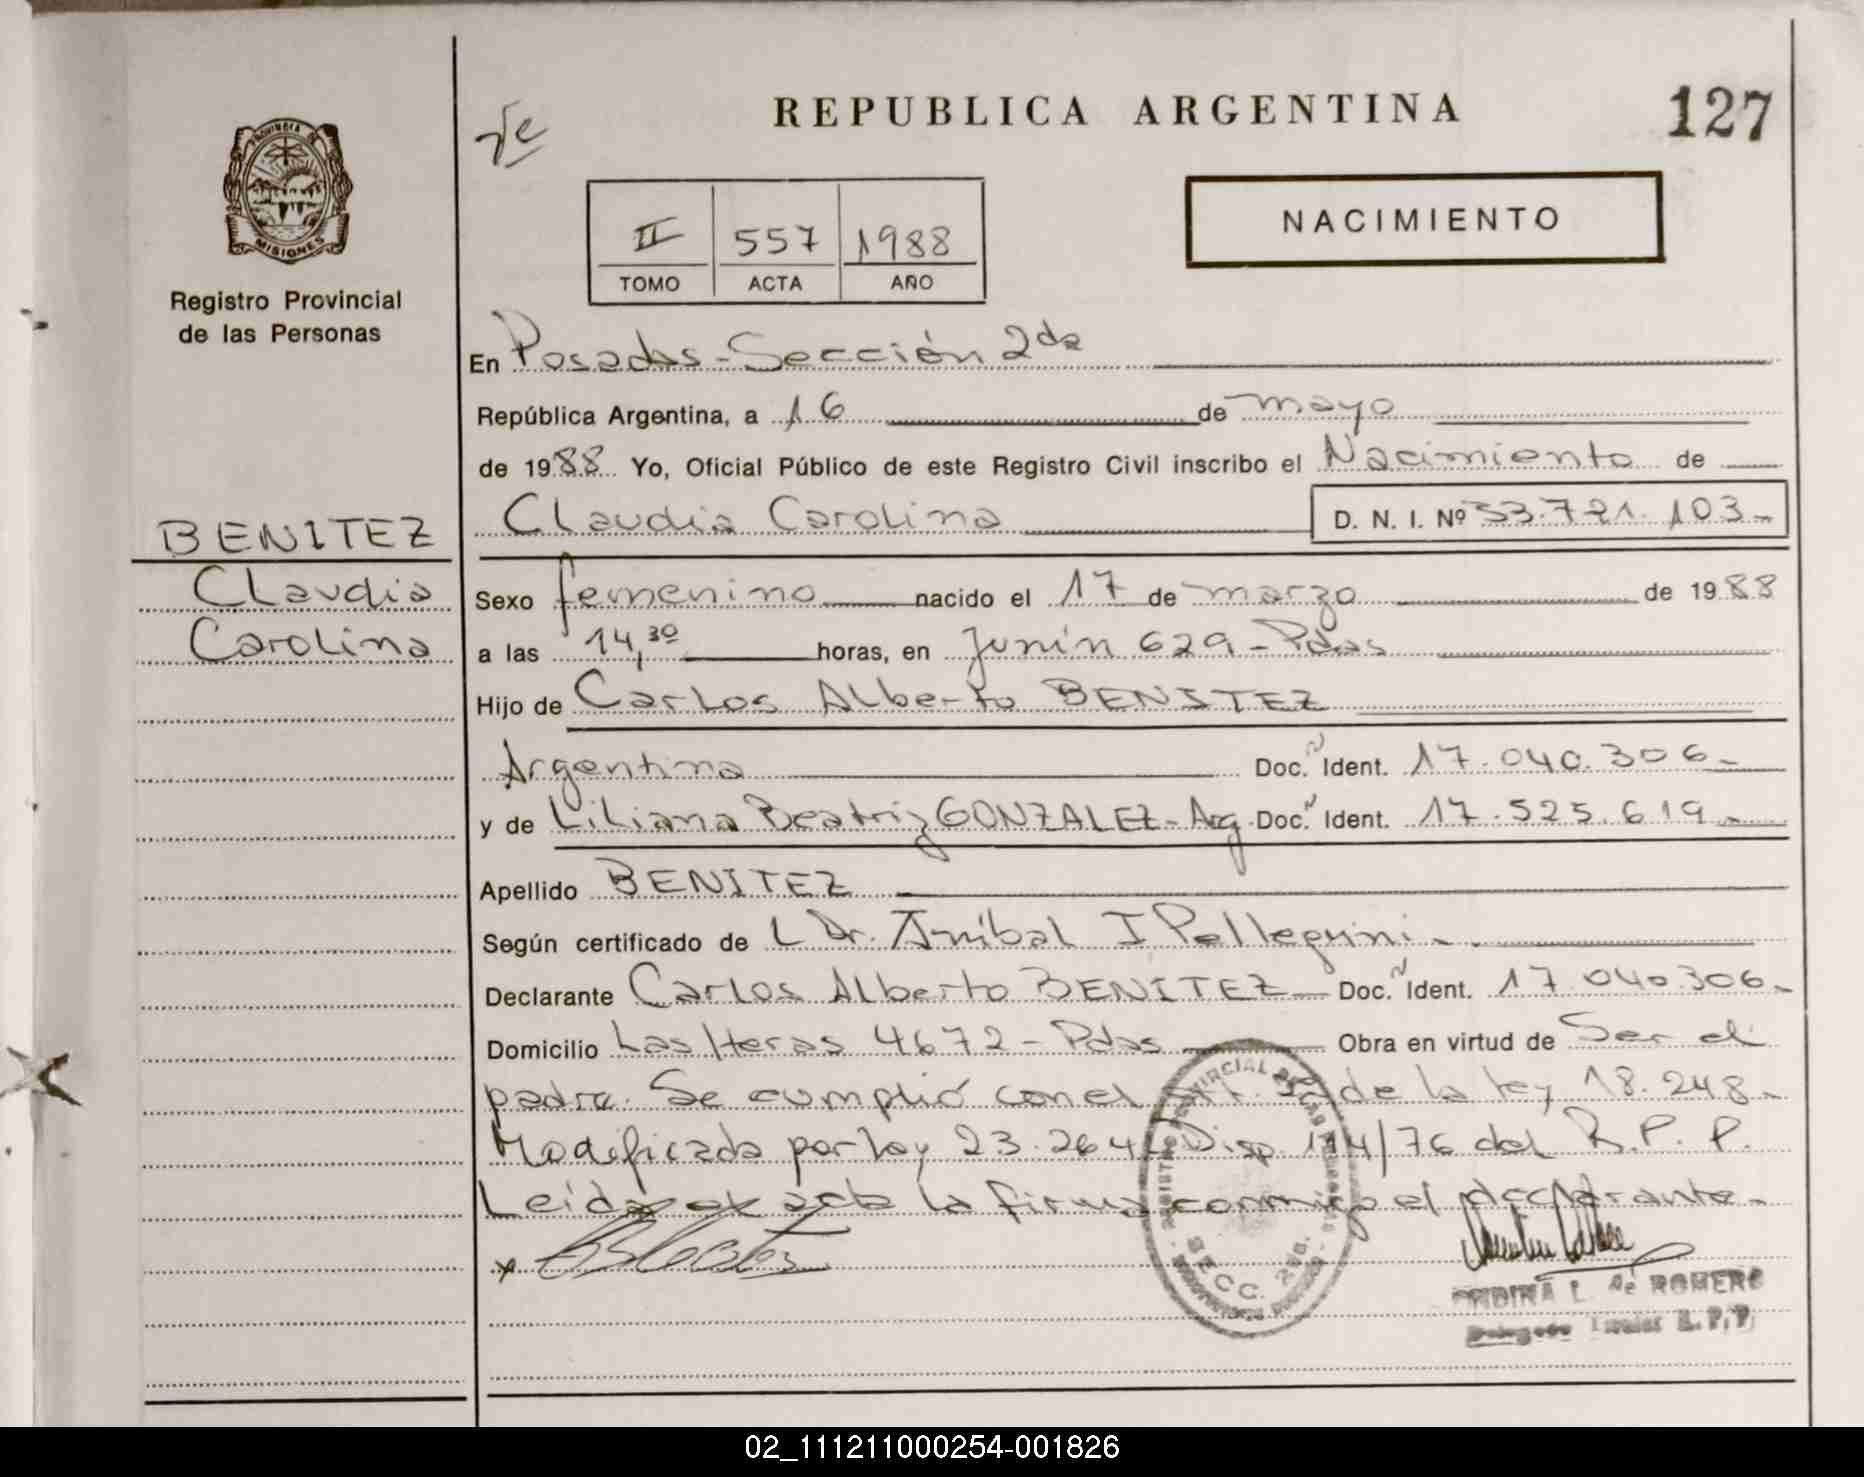 REPUBLICA ARGENTINA
127
PROVINCIA DE
MISIONES
Registro Provincial
de las Personas
II 557 1988
TOMO ACTA AÑO
NACIMIENTO
En Posadas-Sección 2da
República Argentina, a 16 de mayo
de 1988 Yo, Oficial Público de este Registro Civil inscribo el Nacimiento de
Claudia Carolina D. N. I. Nº 33.721.103-
BENITEZ
Claudia
Carolina
Sexo femenino nacido el 17 de marzo de 1988
a las 14,30 horas, en Junín 629-Pdas
Hijo de Carlos Alberto BENITEZ
Argentina Doc. Ident. 17.040.306-
y de Liliana Beatriz GONZALEZ-Arg. Doc. Ident. 17.525.619-
Apellido BENITEZ
Según certificado de L Dr. Aníbal I Pellegrini
Declarante Carlos Alberto BENITEZ Doc. Ident. 17.040.306-
Domicilio Las Heras 4672-Pdas Obra en virtud de Ser el
padre. Se cumplió con el de la ley 18.248-
Modificada por ley 23.264 Disp. 114/76 del R.P.P.
Leída el acta la firma conmigo el declarante-
SECC. 2da.
L. de ROMERO
Titular R.P.P.
02_111211000254-001826